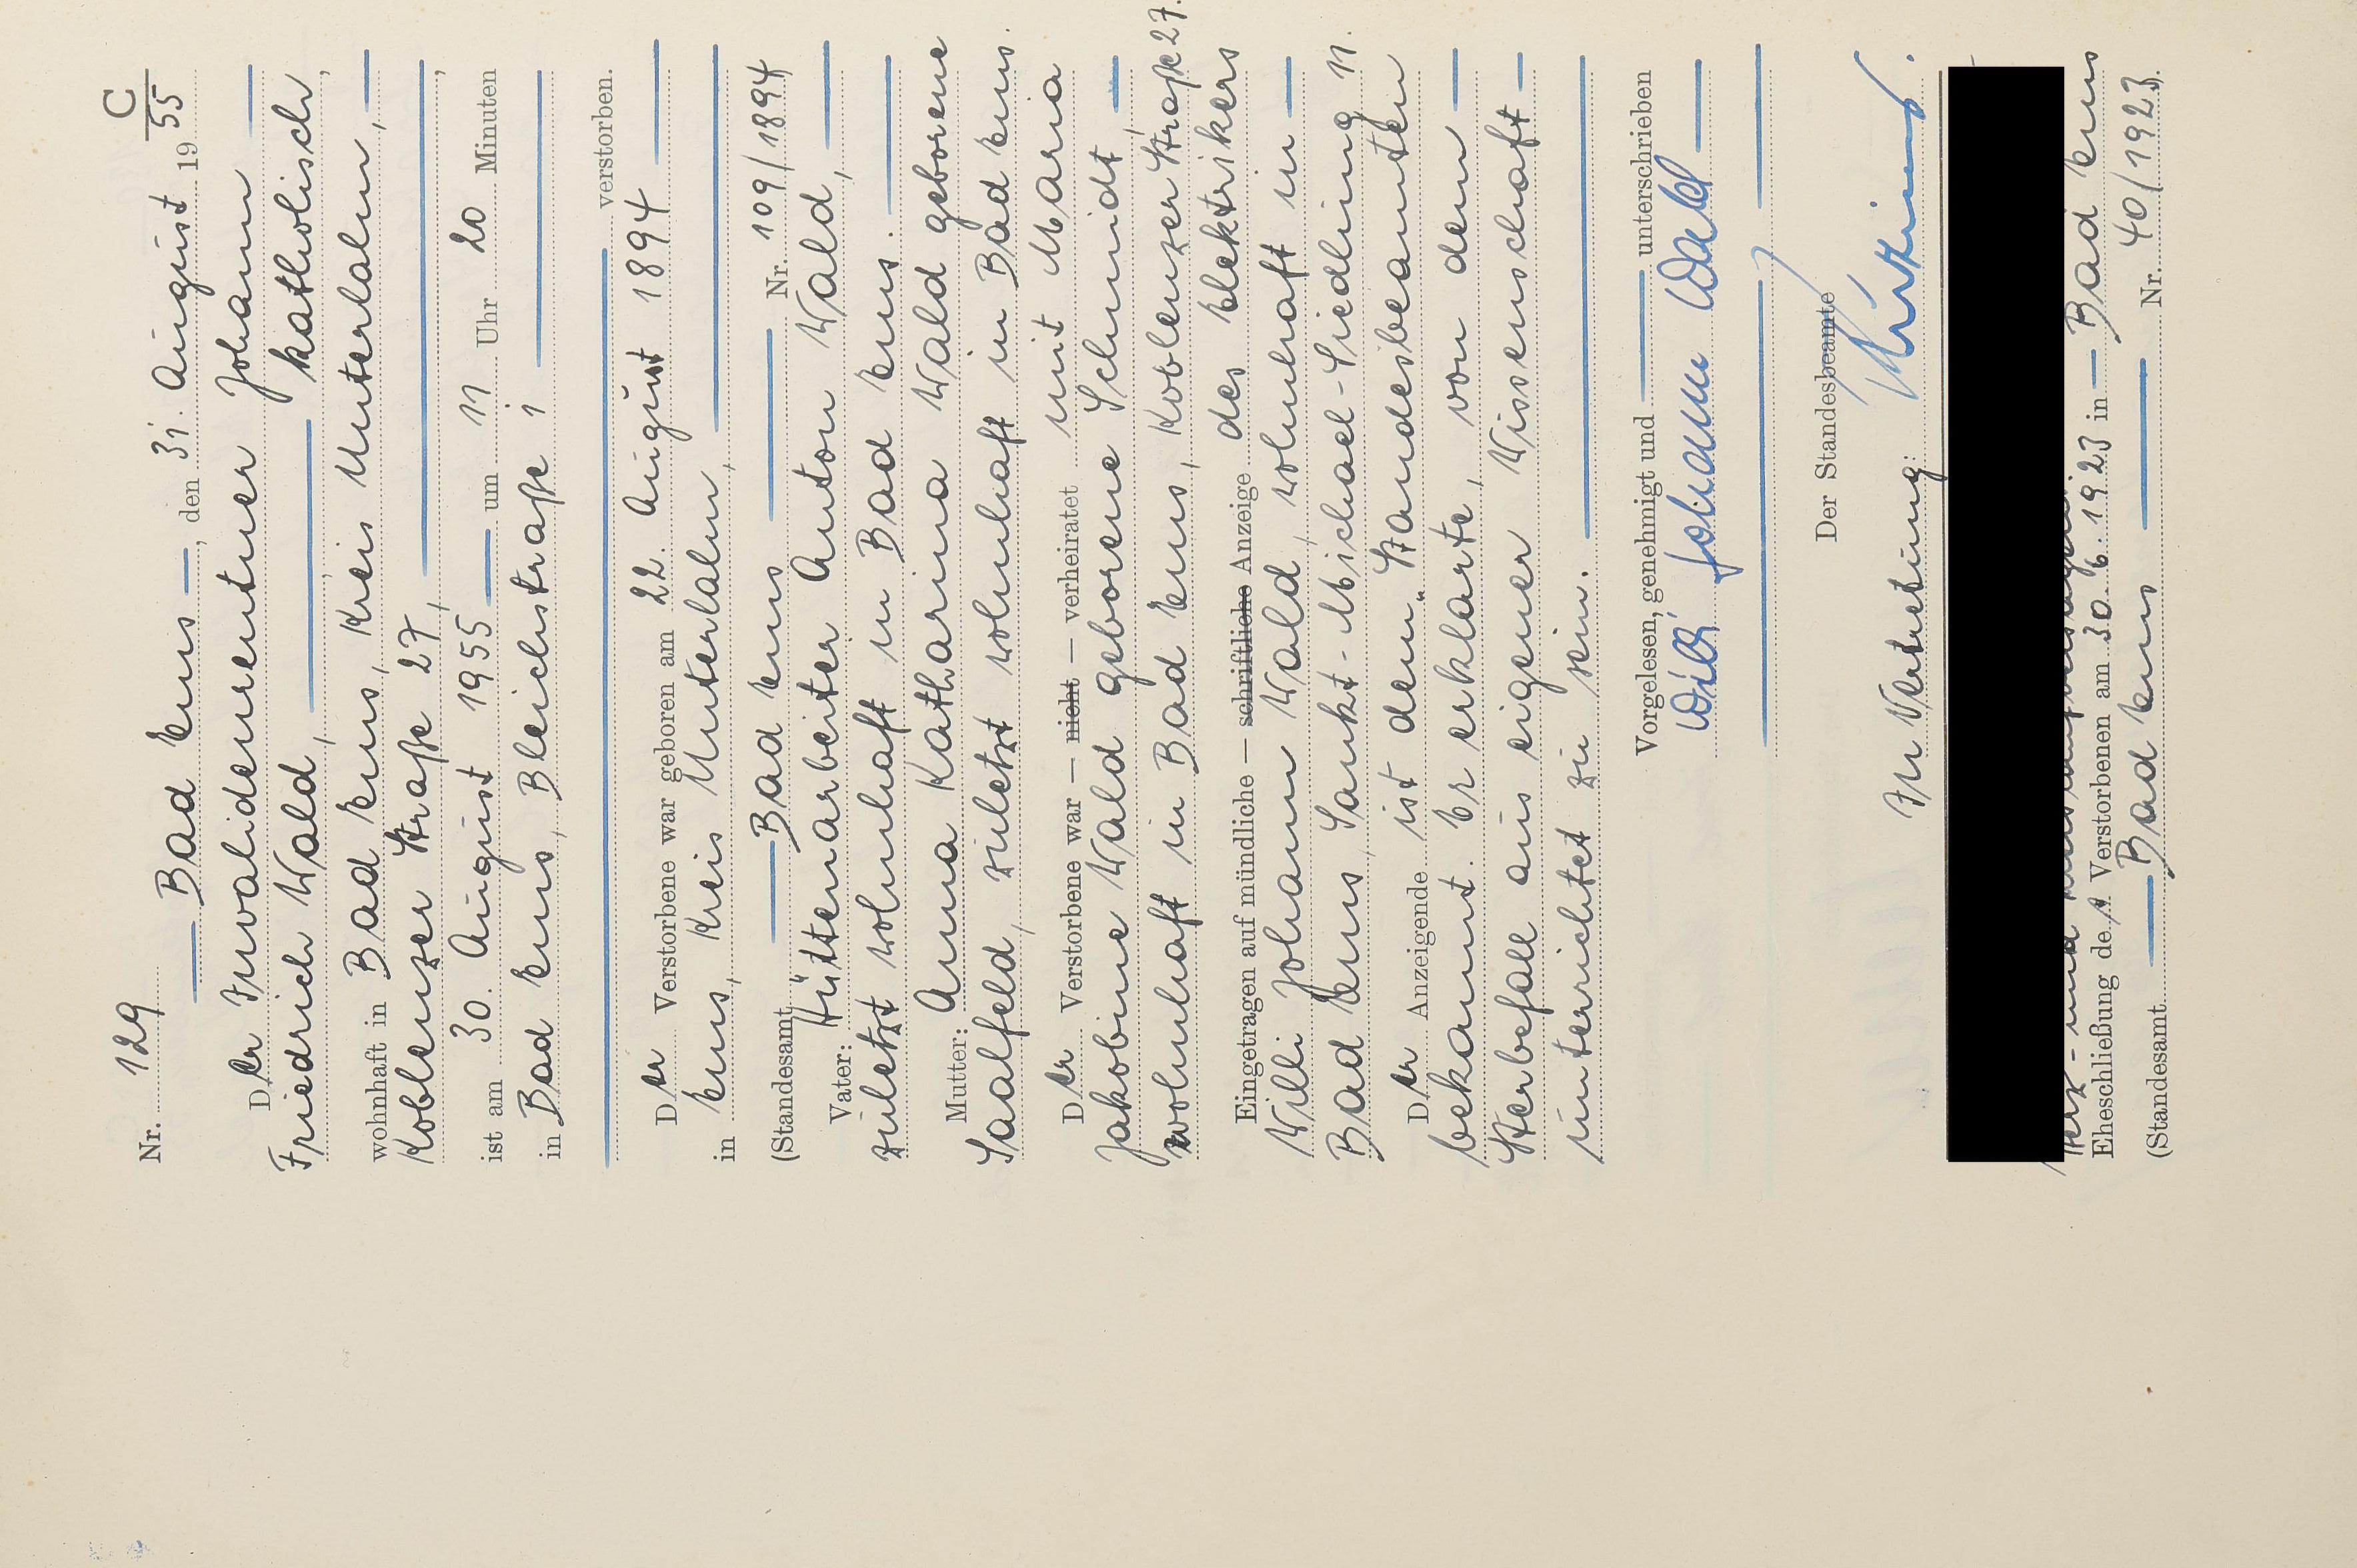 C
Nr. 129
Bad Ems —, den 31. August 19 55
Der Invalidenrentner Johann
Friedrich Wald, — katholisch,
wohnhaft in Bad Ems, Kreis Unterlahn, —
Koblenzer Straße 27, —,
ist am 30. August 1955 — um 11 Uhr 20 Minuten
in Bad Ems, Bleichstraße 1 —
— verstorben.
Der Verstorbene war geboren am 22. August 1894 —
in Ems, Kreis Unterlahn, —
(Standesamt — Bad Ems — Nr. 109/1894
Vater: Hüttenarbeiter Anton Wald, —
zuletzt wohnhaft in Bad Ems. —
Mutter: Anna Katharina Wald geborene
Saalfeld, zuletzt wohnhaft in Bad Ems.
Der Verstorbene war — nicht — verheiratet mit Maria
Jakobine Wald geborene Schmidt, —
wohnhaft in Bad Ems, Koblenzer Straße 27.
Eingetragen auf mündliche — schriftliche Anzeige des Elektrikers
Willi Johann Wald, wohnhaft in —
Bad Ems, Sankt-Michael-Siedlung 11.
Der Anzeigende ist dem Standesbeamten
bekannt. Er erklärte, von dem —
Sterbefall aus eigener Wissenschaft —
unterrichtet zu sein. —
Vorgelesen, genehmigt und — unterschrieben
Willi Johann Wald —
Der Standesbeamte
In Vertretung:
Eheschließung der Verstorbenen am 30.6.1923 in — Bad Ems
(Standesamt — Bad Ems — Nr. 40/1923).